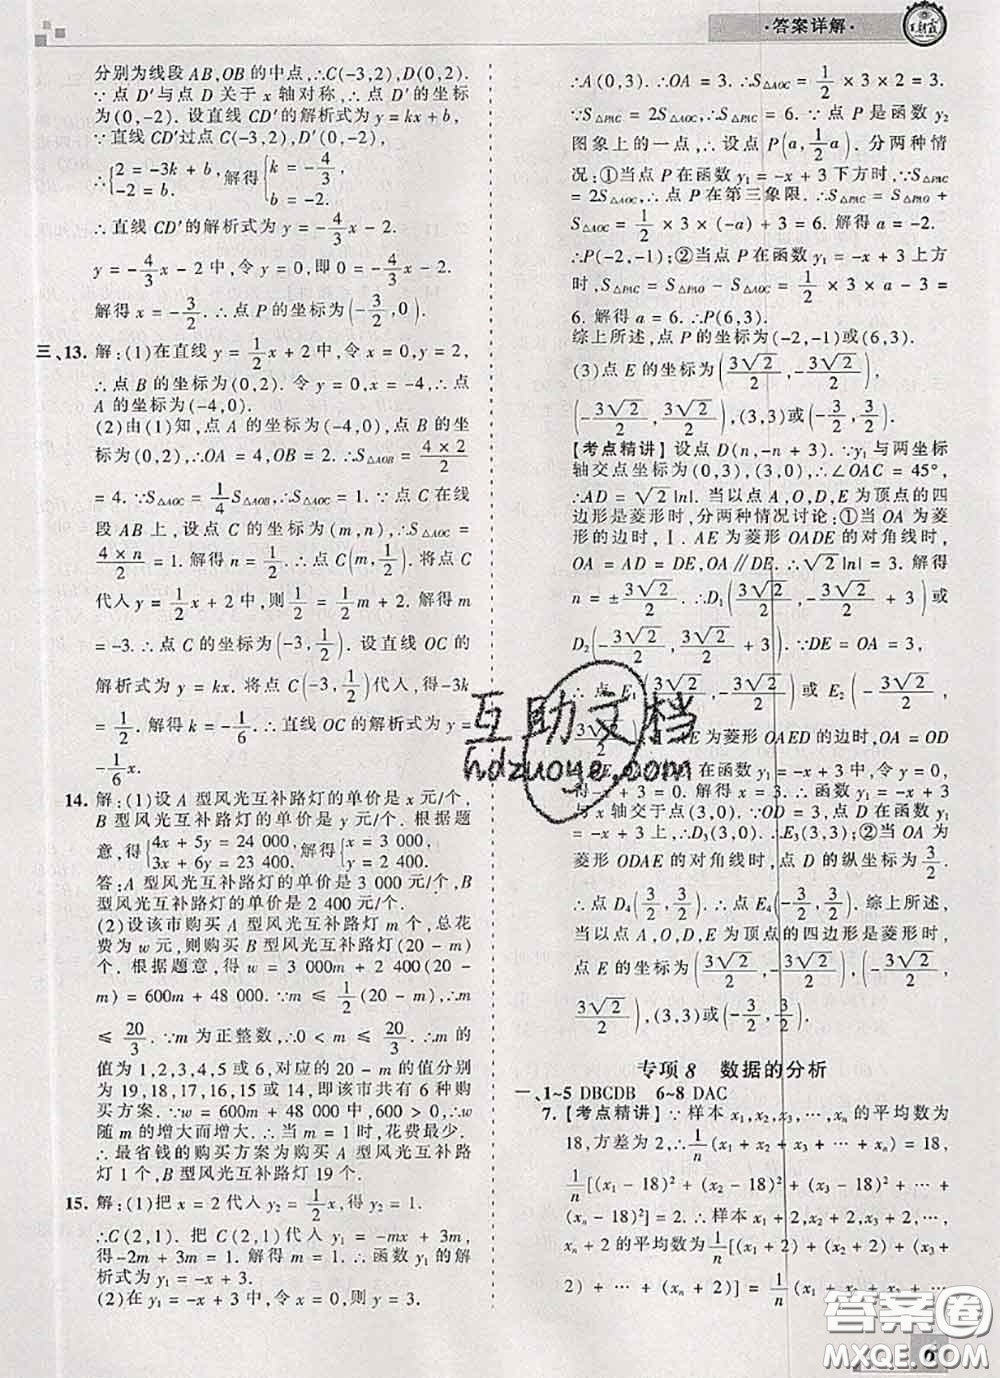 ·答案详解·
王朝霞
分别为线段 AB,OB 的中点,∴C(-3,2),D(0,2).
∵点 D′与点 D 关于 x 轴对称,∴点 D′的坐标
为(0,-2). 设直线 CD′的解析式为 y=kx+b,
∵直线 CD′过点 C(-3,2),D′(0,-2),
∴{2=-3k+b, -2=b. 解得{k=-4/3, b=-2.
∴直线 CD′的解析式为 y=-4/3x-2.
y=-4/3x-2 中,令 y=0,即 0=-4/3x-2.
解得 x=-3/2. ∴点 P 的坐标为(-3/2,0).
三、13. 解:(1)在直线 y=1/2x+2 中,令 x=0,y=2,
∴点 B 的坐标为(0,2). 令 y=0,x=-4,∴点
A 的坐标为(-4,0).
(2)由(1)知,点 A 的坐标为(-4,0),点 B 的坐
标为(0,2),∴OA=4,OB=2. ∴S△AOB=4×2/2
=4. ∵S△AOC=1/4S△AOB,∴S△AOC=1. ∵点 C 在线
段 AB 上,设点 C 的坐标为(m,n),∴S△AOC=
4×n/2=1. 解得 n=1/2. ∴点 C(m,1/2). 将点 C
代入 y=1/2x+2 中,则1/2=1/2x+2. 解得 m
=-3. ∴点 C 的坐标为(-3,1/2). 设直线 OC 的
解析式为 y=kx. 将点 C(-3,1/2)代入,得-3k
=1/2. 解得 k=-1/6. ∴直线 OC 的解析式为 y=
-1/6x.
14. 解:(1)设 A 型风光互补路灯的单价是 x 元/个,
B 型风光互补路灯的单价是 y 元/个. 根据题
意,得{4x+5y=24 000, 3x+6y=23 400. 解得{x=3 000, y=2 400.
答:A 型风光互补路灯的单价是 3 000 元/个,B
型风光互补路灯的单价是 2 400 元/个.
(2)设该市购买 A 型风光互补路灯 m 个,总花
费为 w 元,则购买 B 型风光互补路灯(20-m)
个. 根据题意,得 w=3 000m+2 400(20-
m)=600m+48 000. ∵m≤1/2(20-m),∴m
≤20/3. ∵m 为正整数,∴0<m≤20/3. ∴m 的
值为 1,2,3,4,5,6,对应的 20-m 的值分别为
19,18,17,16,15,14,即该市共有 6 种购买
方案. ∵w=600m+48 000,600>0,∴w
随 m 的增大而增大. ∴当 m=1 时,花费最少.
∴最省钱的购买方案为购买 A 型风光互补路
灯 1 个,B 型风光互补路灯 19 个.
15. 解:(1)把 x=2 代入 y₂=1/2x,得 y₂=1.
∴C(2,1). 把 C(2,1)代入 y₁=-mx+3m,
得-2m+3m=1. 解得 m=1. ∴函数 y₁ 的解
析式为 y₁=-x+3.
(2)在 y₁=-x+3 中,令 x=0,则 y₁=3.
∴A(0,3). ∴OA=3. ∴S△AOC=1/2×3×2=3.
∵S△PAC=2S△AOC,∴S△PAC=6. ∵点 P 是函数 y₂
图象上的一点,∴设点 P(a,1/2a). 分两种情
况:①当点 P 在函数 y₁=-x+3 下方时,∵S△PAC
=2S△AOC,∴点 P 在第三象限. ∴S△PAC=S△PAO+
S△AOC=1/2×3×(-a)+3=6. 解得 a=-2.
∴P(-2,-1);②当点 P 在函数 y₁=-x+3 上方
时,S△PAC=S△PAO-S△AOC=1/2×3×a-3=
6. 解得 a=6. ∴P(6,3).
综上所述,点 P 的坐标为(-2,-1)或(6,3).
(3)点 E 的坐标为(3√2/2,-3√2/2),
(-3√2/2,3√2/2),(3,3)或(-3/2,3/2).
【考点精讲】设点 D(n,-n+3). ∵y₁ 与两坐标
轴交点坐标为(0,3),(3,0),∴∠OAC=45°,
∴AD=√2|n|. 当以 A,O,D,E 为顶点的四
边形是菱形时,分两种情况讨论:①当 OA 为菱
形的边时,Ⅰ. AE 为菱形 OADE 的对角线时,
OA=AD=DE,OA∥DE. ∴√2|n|=3. 解得
n=±3√2/2. ∴D₁(3√2/2,-3√2/2+3)或
D₂(-3√2/2,3√2/2+3). ∵DE=OA=3,
∴点 E₁(3√2/2,-3√2/2)或 E₂(-3√2/2,
3√2/2) E 为菱形 OAED 的边时,OA=OD
D 在函数 y₁=-x+3 中,
得 -x+3=0. 解得 x=3. ∴函数 y₁=-x+3
与 x 轴交于点(3,0). ∵OD=3,点 D 在函数 y₁
=-x+3 上,∴D₃(3,0). ∴E₃(3,3);②当 OA
菱形 ODAE 的对角线时,点 D 的纵坐标为3/2.
∴点 D₄(3/2,3/2),∴点 E₄(-3/2,3/2). 综上所述,
当以点 A,O,D,E 为顶点的四边形是菱形时,
点 E 的坐标为(3√2/2,-3√2/2),(-3√2/2,
3√2/2),(3,3)或(-3/2,3/2).
专项 8 数据的分析
一、1~5 DBCDB 6~8 DAC
7.【考点精讲】∵样本 x₁,x₂,x₃,…,xₙ 的平均数为
18,方差为 2,∴1/n(x₁+x₂+x₃+…+xₙ)=18,
1/n[(x₁-18)²+(x₂-18)²+(x₃-18)²+…+
(xₙ-18)²]=2. ∴样本 x₁+2,x₂+2,x₃+2,…,
xₙ+2 的平均数为1/n[(x₁+2)+(x₂+2)+(x₃+
2)+…+(xₙ+2)]=1/n(x₁+x₂+x₃+…
互助文档
hdzuoye.com
答案圈
MXQE.COM